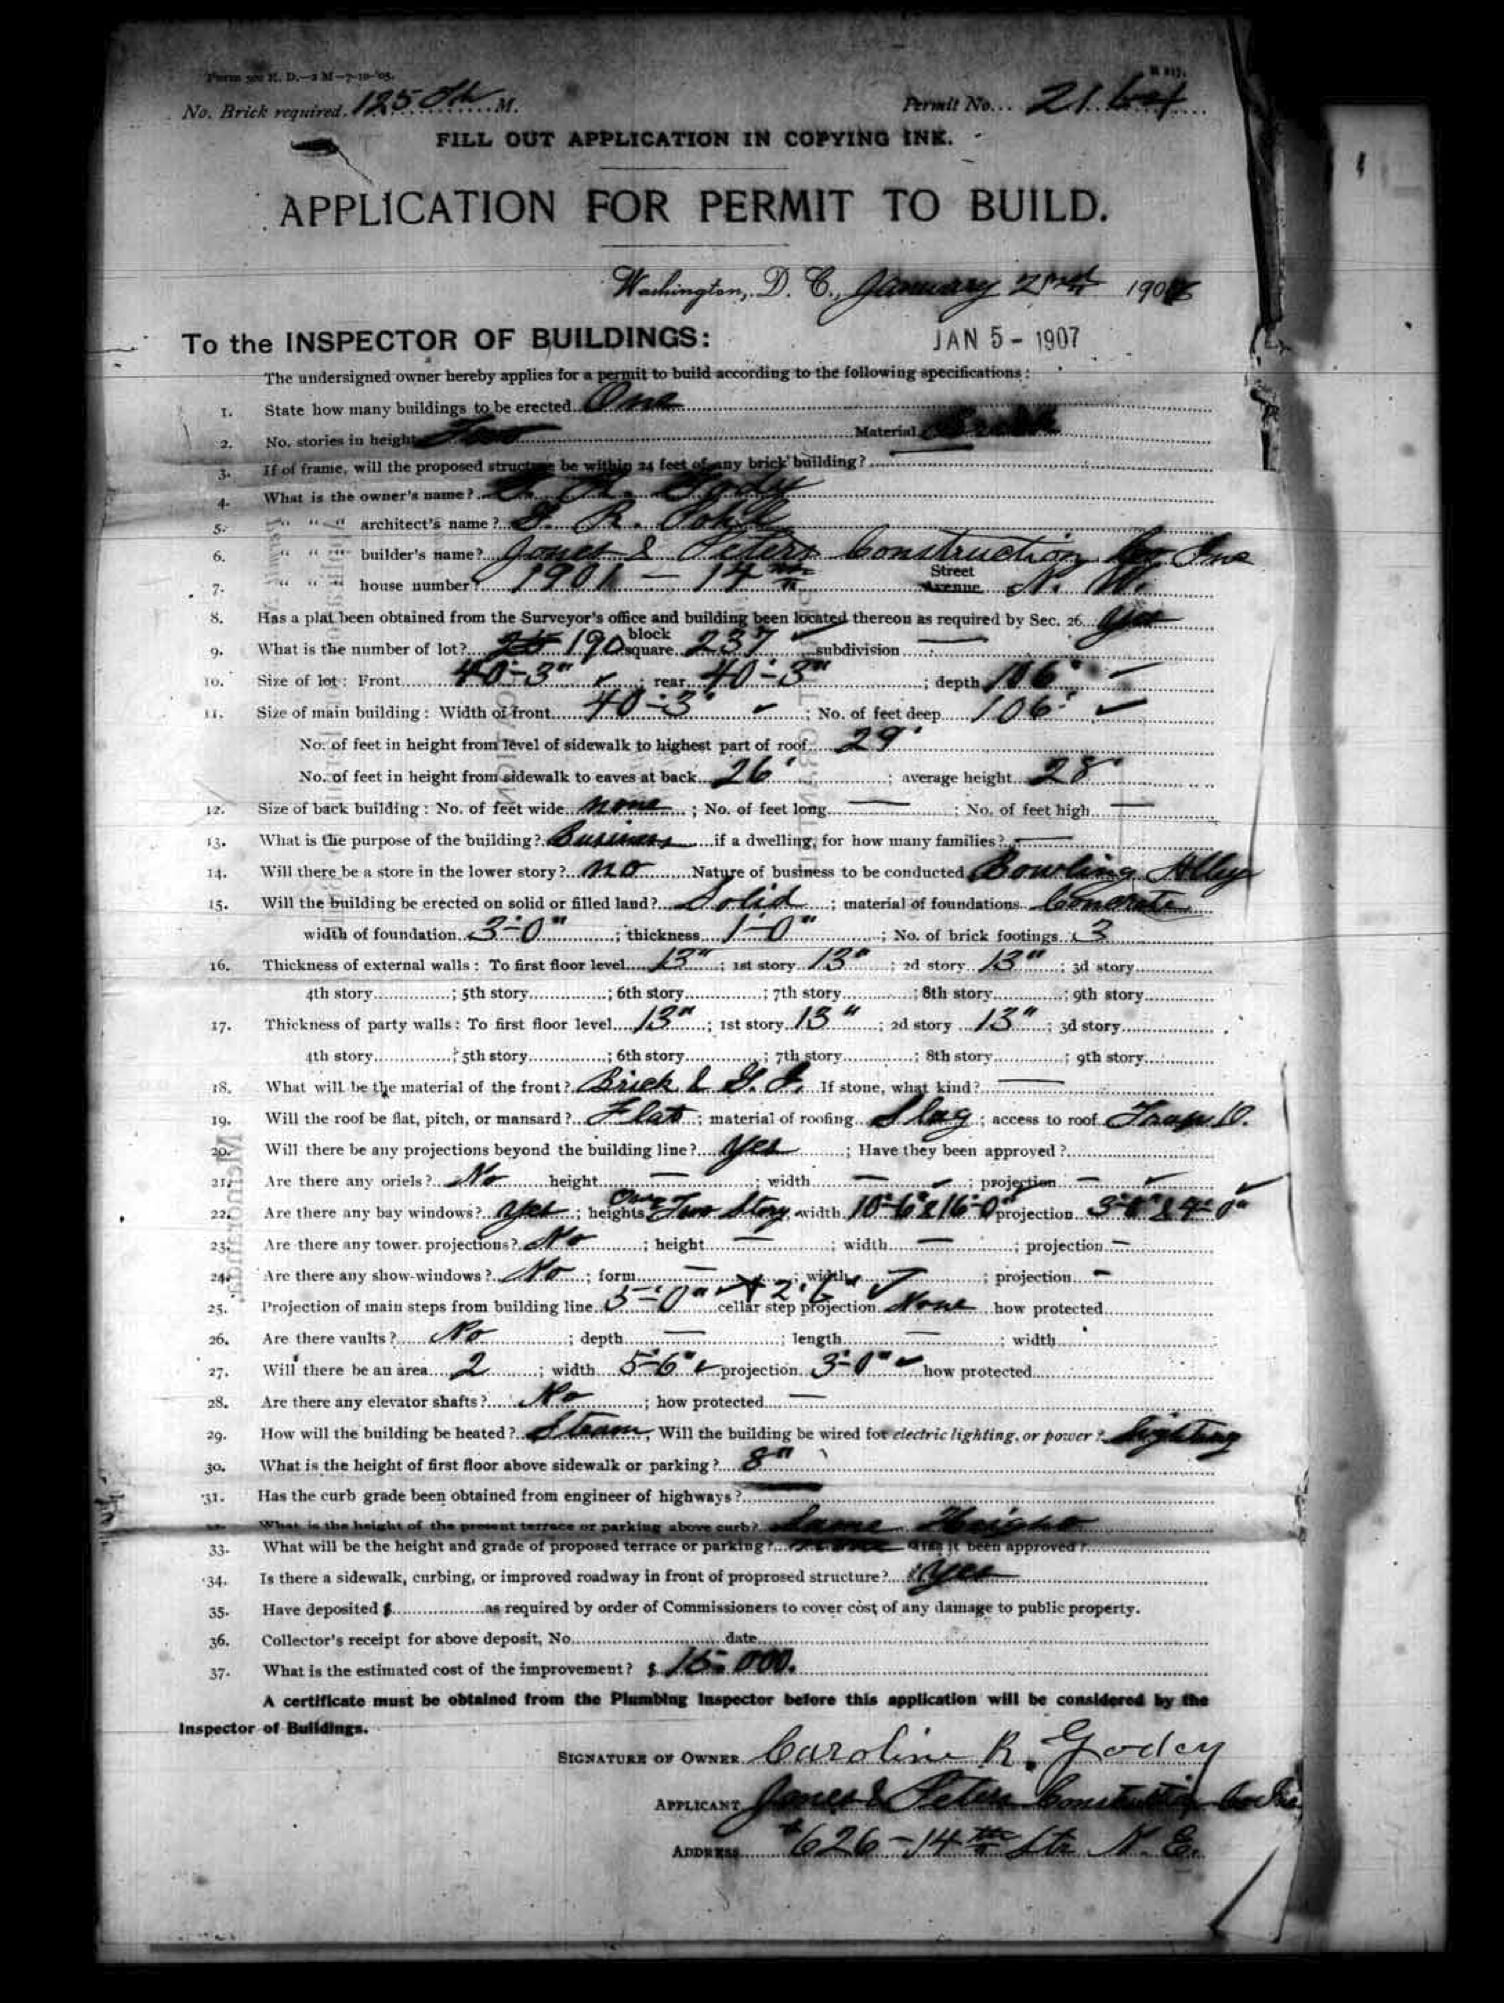 Form 500 E. D.—2 M—7-10-'05.
No. Brick required. 125 M.
Permit No... 21
FILL OUT APPLICATION IN COPYING INK.
APPLICATION FOR PERMIT TO BUILD.
Washington, D. C., January 2nd 190
To the INSPECTOR OF BUILDINGS:
JAN 5 - 1907
The undersigned owner hereby applies for a permit to build according to the following specifications:
1. State how many buildings to be erected One
2. No. stories in height Two Material Brick
3. If of frame, will the proposed structure be within 24 feet of any brick building?
4. What is the owner's name?
5. " " " architect's name?
6. " " " builder's name? Jones & Peters Construction Co Inc
7. " " " house number? 1901 — 14th Street Avenue N. W.
8. Has a plat been obtained from the Surveyor's office and building been located thereon as required by Sec. 26. Yes
9. What is the number of lot? 190 block square 237 subdivision —
10. Size of lot: Front 40'-3" ; rear 40'-3" ; depth 106'
11. Size of main building: Width of front 40'-3" ; No. of feet deep 106'
No. of feet in height from level of sidewalk to highest part of roof 29'
No. of feet in height from sidewalk to eaves at back 26' ; average height 28'
12. Size of back building: No. of feet wide none ; No. of feet long — ; No. of feet high —
13. What is the purpose of the building? Business if a dwelling, for how many families? —
14. Will there be a store in the lower story? no Nature of business to be conducted Bowling Alleys
15. Will the building be erected on solid or filled land? Solid ; material of foundations Concrete
width of foundation 3'-0" ; thickness 1'-0" ; No. of brick footings 3
16. Thickness of external walls: To first floor level 13" ; 1st story 13" ; 2d story 13" ; 3d story
4th story ; 5th story ; 6th story ; 7th story ; 8th story ; 9th story
17. Thickness of party walls: To first floor level 13" ; 1st story 13" ; 2d story 13" ; 3d story
4th story ; 5th story ; 6th story ; 7th story ; 8th story ; 9th story
18. What will be the material of the front? Brick & G. I. If stone, what kind? —
19. Will the roof be flat, pitch, or mansard? Flat ; material of roofing Slag ; access to roof Trap D.
20. Will there be any projections beyond the building line? Yes ; Have they been approved?
21. Are there any oriels? No height — ; width — ; projection —
22. Are there any bay windows? Yes ; heights One & Two Story, width 10'-6" & 16'-0" projection 3'-0" & 4'-0"
23. Are there any tower projections? No ; height — ; width — ; projection —
24. Are there any show-windows? No ; form — ; width ; projection —
25. Projection of main steps from building line 5'-0" x 2'6" cellar step projection None how protected
26. Are there vaults? No ; depth — ; length — ; width
27. Will there be an area 2 ; width 5'-6" projection 3'-0" how protected
28. Are there any elevator shafts? No ; how protected —
29. How will the building be heated? Steam; Will the building be wired for electric lighting, or power? Lighting
30. What is the height of first floor above sidewalk or parking? 8"
31. Has the curb grade been obtained from engineer of highways? —
What is the height of the present terrace or parking above curb? Same Height
33. What will be the height and grade of proposed terrace or parking? Has it been approved?
34. Is there a sidewalk, curbing, or improved roadway in front of proprosed structure? Yes
35. Have deposited $ as required by order of Commissioners to cover cost of any damage to public property.
36. Collector's receipt for above deposit, No. date
37. What is the estimated cost of the improvement? $ 15,000.
A certificate must be obtained from the Plumbing Inspector before this application will be considered by the
Inspector of Buildings.
SIGNATURE OF OWNER Caroline R. Godey
APPLICANT Jones & Peters Construction Co Inc
ADDRESS #626-14th Str N. E.